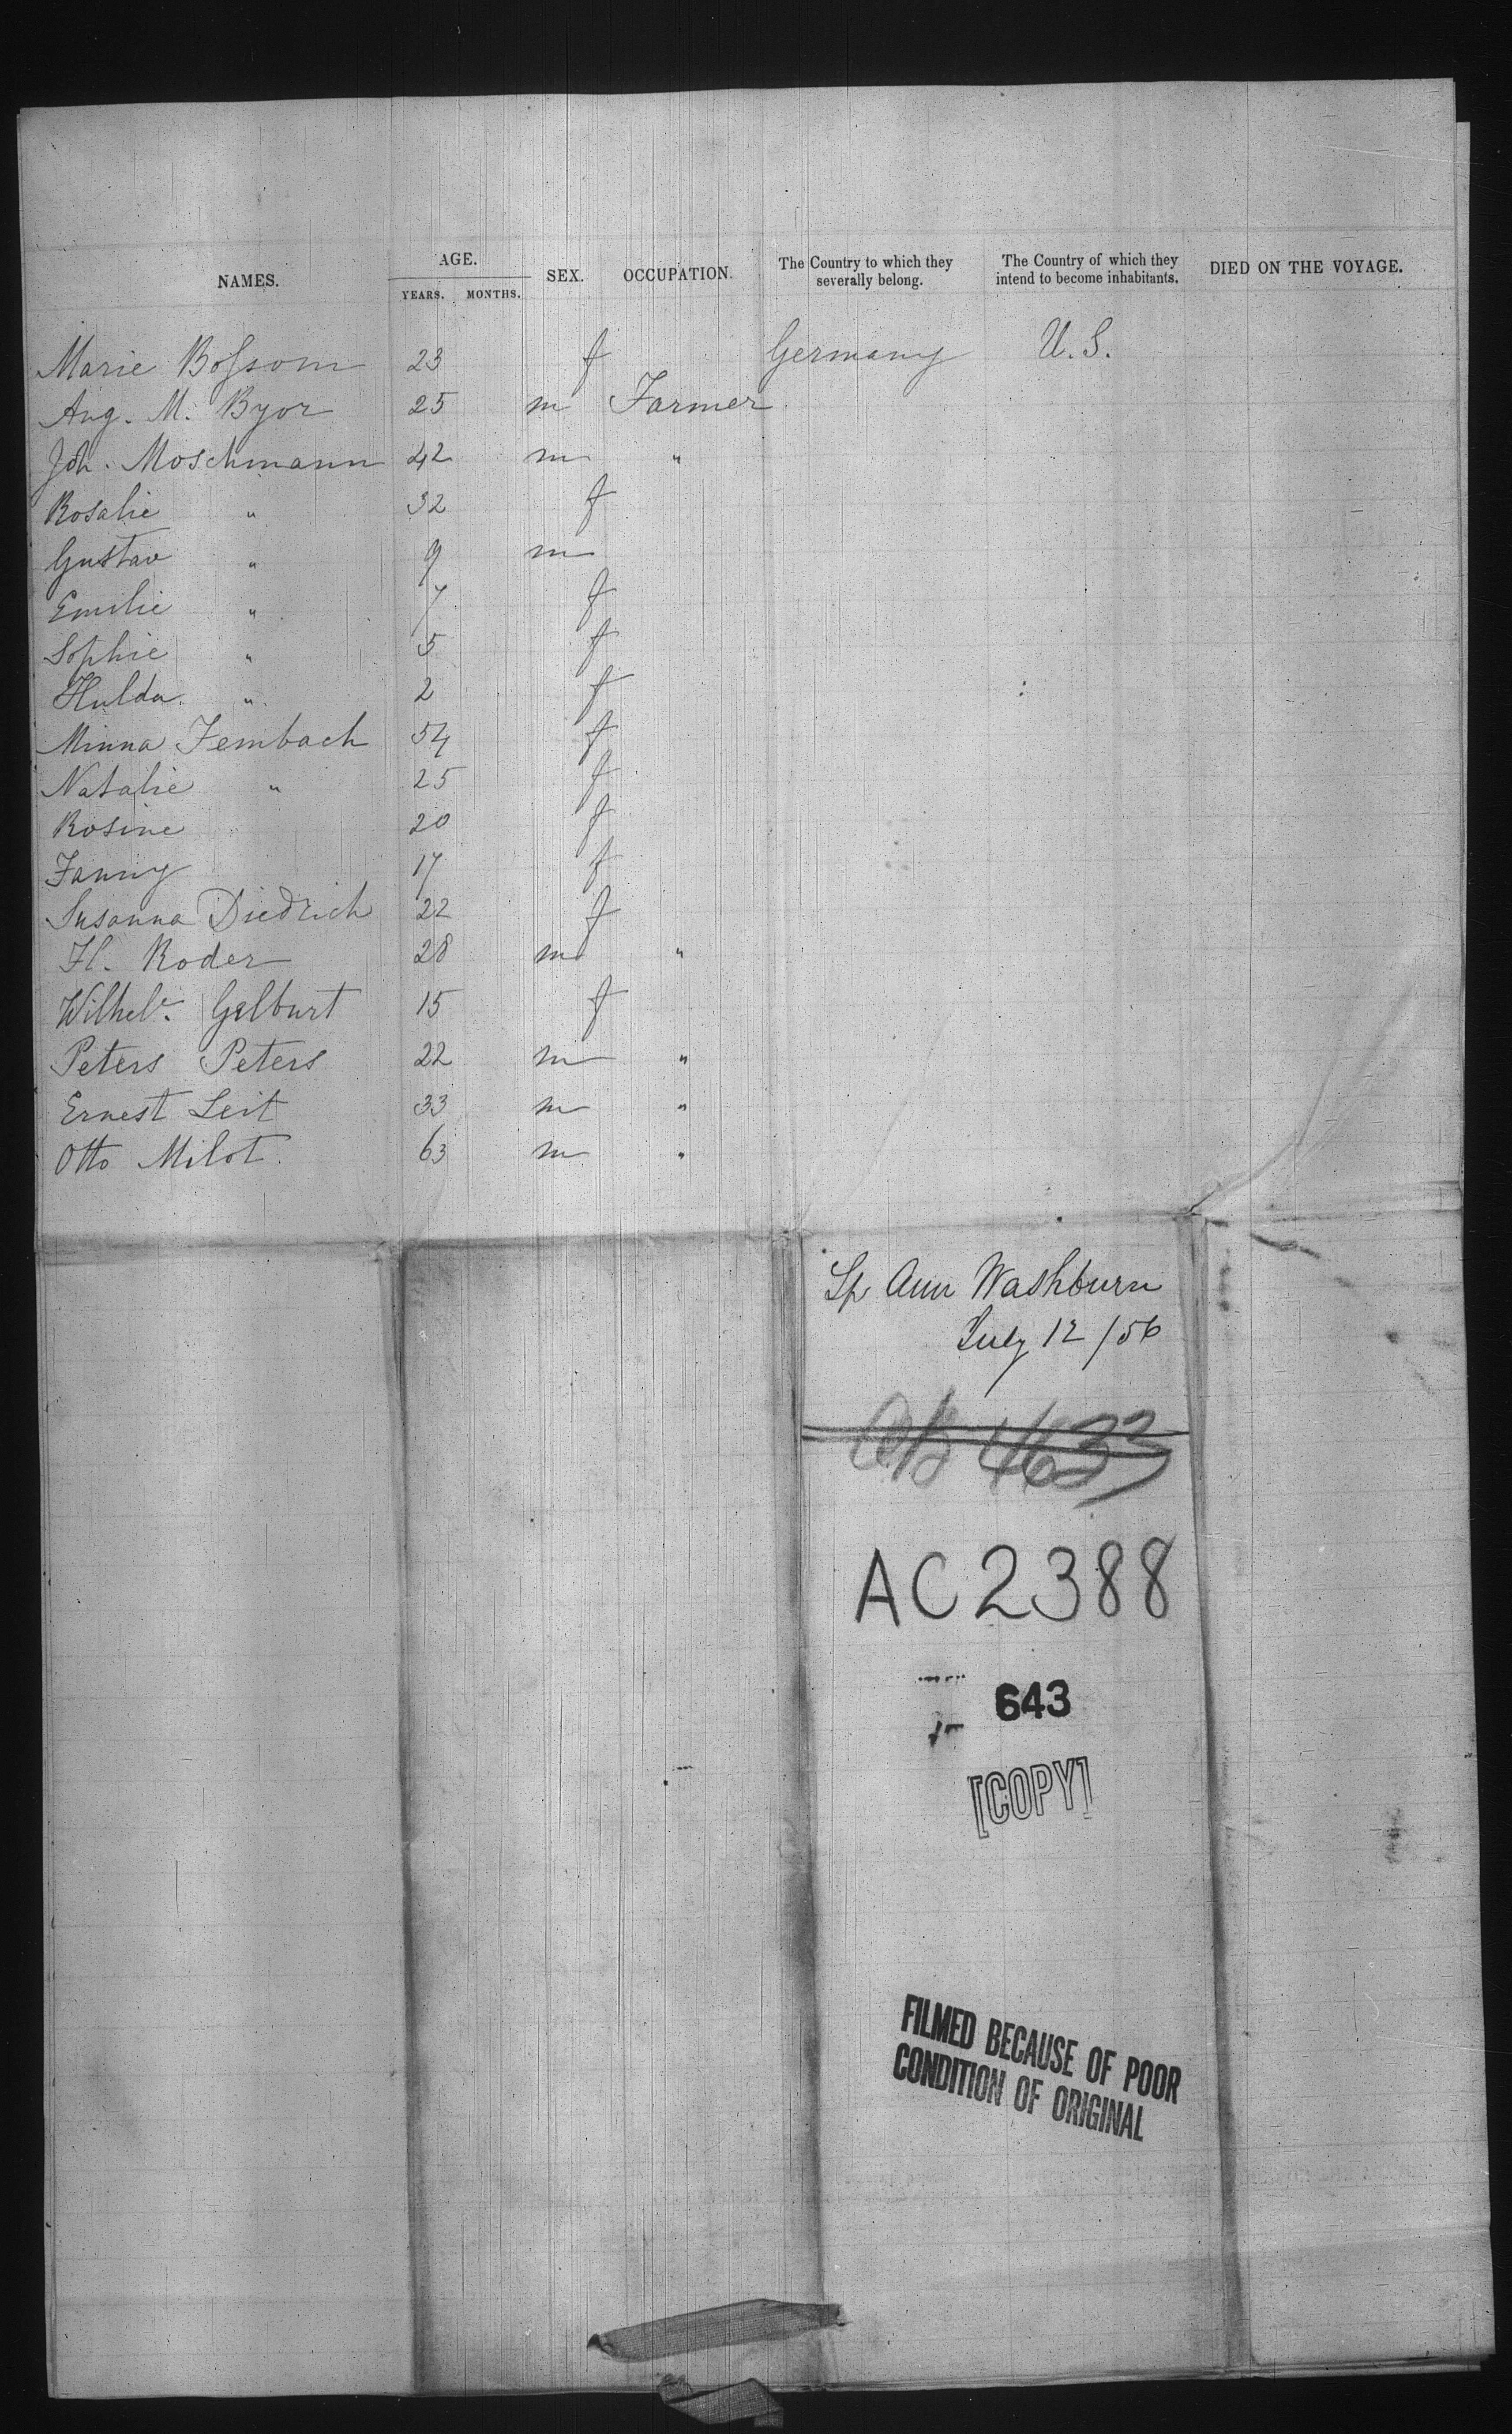 NAMES. AGE. YEARS. MONTHS. SEX. OCCUPATION. The Country to which they severally belong. The Country of which they intend to become inhabitants. DIED ON THE VOYAGE.
Marie Bossom 23 f Germany U.S.
Aug. M. Byor 25 m Farmer
Joh. Moschmann 42 m "
Rosalie " 32 f
Gustav " 9 m
Emilie " 7 f
Sophie " 5 f
Hulda " 2 f
Minna Fembach 54 f
Natalie " 25 f
Rosine 20 f
Fanny 17 f
Susanna Diedrich 22 f
Roder 28 m "
Wilhel. Gelburt 15 f
Peters Peters 22 m "
Ernest Leit 33 m "
Otto Milot 63 m "
Sp Ann Washburn
July 12 / 56
4633
AC2388
643
[COPY]
FILMED BECAUSE OF POOR
CONDITION OF ORIGINAL